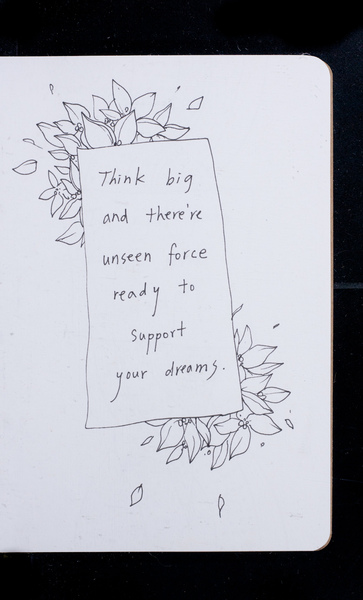 Think big
and there're
unseen force
ready to
support
your dreams.